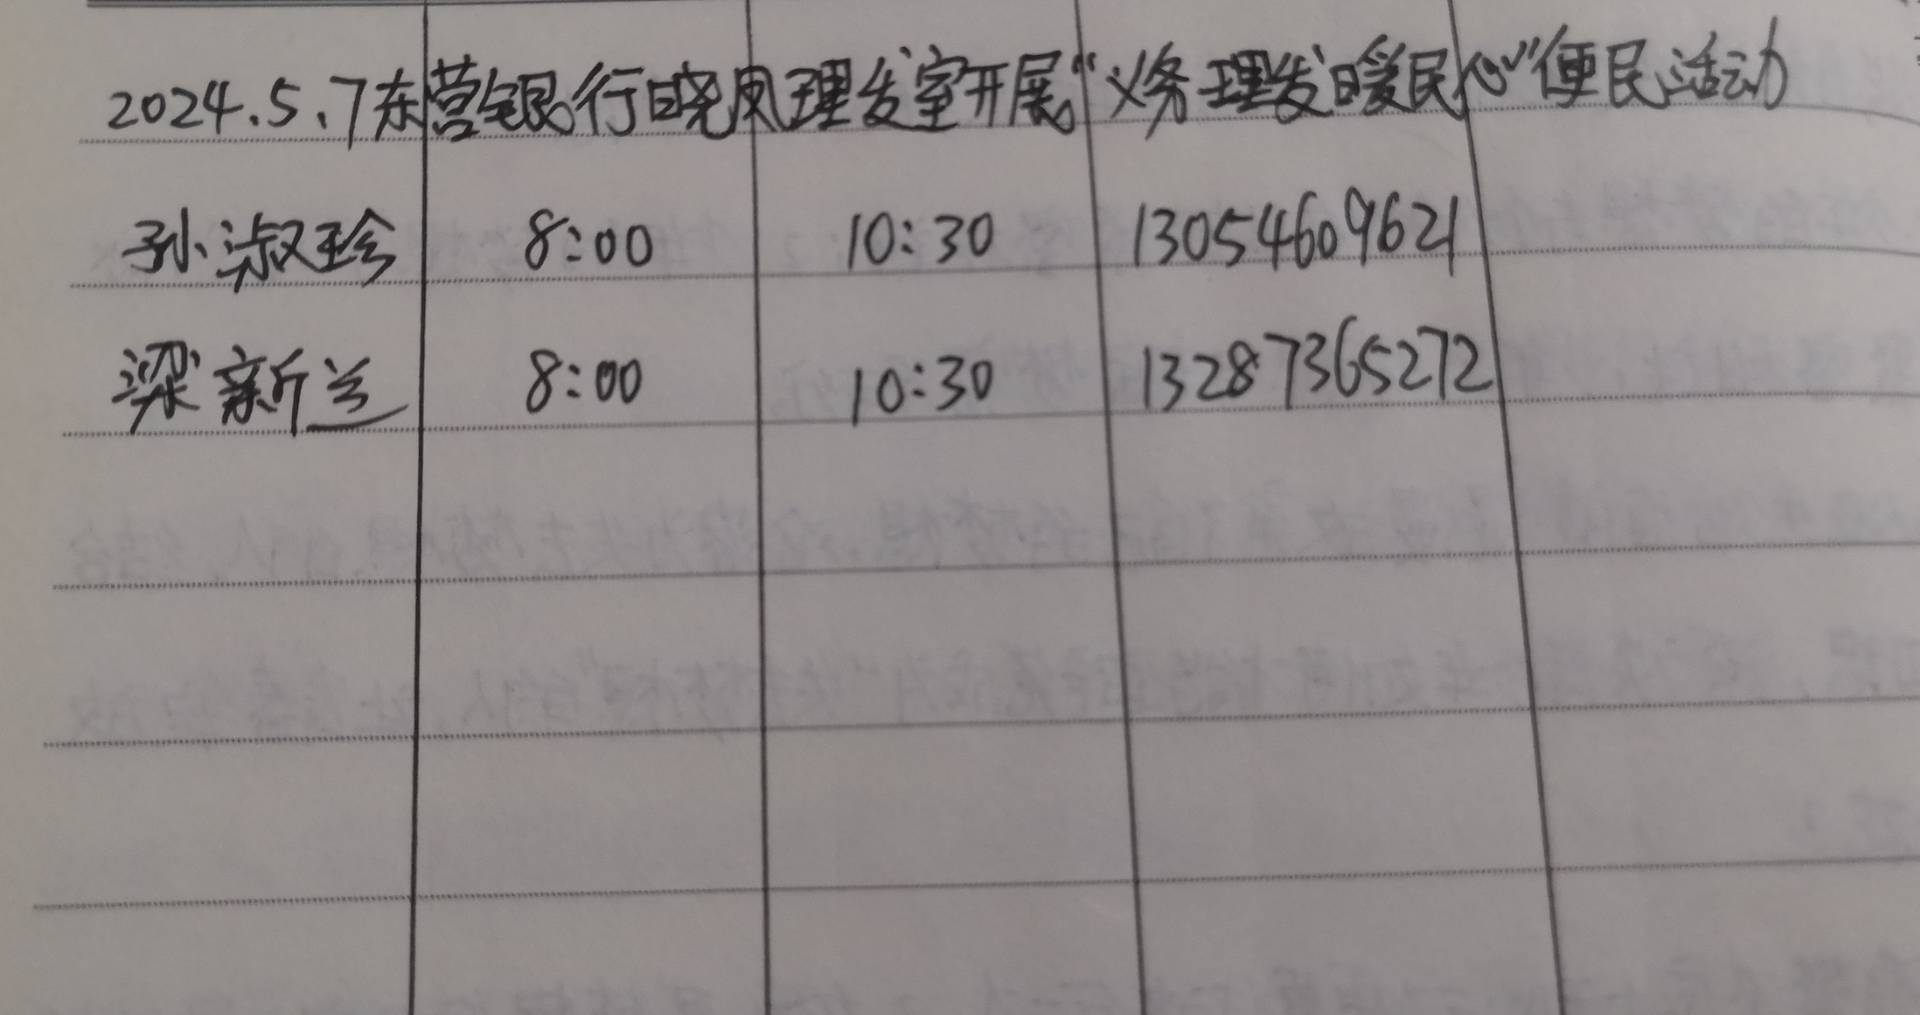 2024.5.7东营银行晓凤理发室开展“义务理发暖民心”便民活动
孙淑珍 8:00 10:30 13054609621
梁新兰 8:00 10:30 13287365272